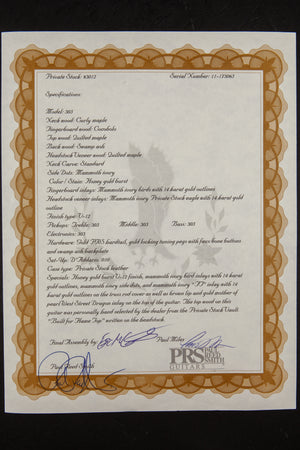 Private Stock: #3012 Serial Number: 11-175067
Specifications:
Model: 305
Neck wood: Curly maple
Fingerboard wood: Cocobolo
Top wood: Quilted maple
Back wood: Swamp ash
Headstock Veneer wood: Quilted maple
Neck Carve: Standard
Side Dots: Mammoth ivory
Color / Stain: Honey gold burst
Fingerboard inlays: Mammoth ivory birds with 14 karat gold outlines
Headstock veneer inlays: Mammoth ivory Private Stock eagle with 14 karat gold
outline
Finish type: V-12
Pickups: Treble: 305 Middle: 305 Bass: 305
Electronics: 305
Hardware: Gold hardtail, gold locking tuning pegs with faux bone buttons
and swamp ash backplate
Set-Up: D'Addario .010
Case type: Private Stock leather
Specials: Honey gold burst V-12 finish, mammoth ivory bird inlays with 14
karat gold outlines, mammoth ivory side dots, and mammoth ivory inlay with 14
karat gold outlines on the truss rod cover as well as brown lip and gold mother of
pearl West Street Dragon inlay on the top of the guitar. The top wood on this
guitar was personally hand selected by the dealer from the Private Stock Vault
"Built for Name Top" written on the headstock.
Final Assembly by Paul Miles
Paul Reed Smith
PRS PAUL REED SMITH
GUITARS